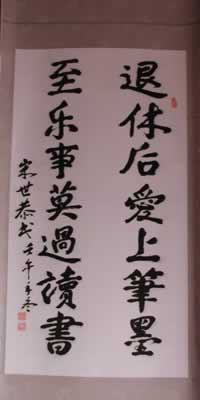 退休后愛上筆墨
至乐事莫過讀書
宋世恭 壬午年冬